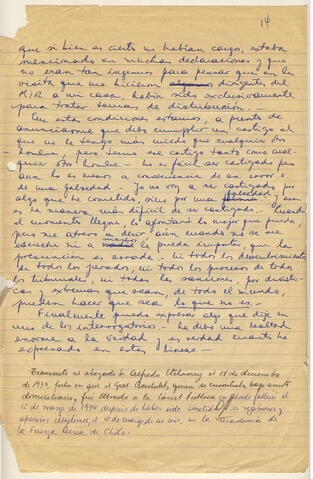 14
que si bien es cierto no habían cargo, estaba
mencionado en muchas declaraciones y que
no eran tan ingenuos para pensar que en la
visita que me hicieron dirigentes del
MIR a mi casa, habían sido exclusivamente
para tratar temas de distribución.
En esta condiciones estamos, a punto de
anunciarme que debo cumplir un castigo al
que no le tengo más miedo que cualquier otro
hombre, pero temo ese castigo tanto como cual-
quier otro hombre - no es fácil ser castigado pero
aún lo es menos a consecuencia de un error o
de una falsedad. Yo no voy a ser castigado por
algo que he cometido, sino por una falsedad y esa
es la manera más difícil de ser castigado. Cuando
el momento llegue, lo afrontaré lo mejor que pueda,
pero me atrevo a decir aún cuando no se me
escuche ni a nadie le pueda importar, que la
presunción es errada. Ni todos los descubrimientos
de todos los jurados, ni todos los procesos de todos
los tribunales, ni todas las sanciones, por drásti-
cas y extremas que sean, de todo el mundo,
pueden hacer que sea, lo que no es.
Finalmente puedo expresar algo que dije en
uno de los interrogatorios. - he debo una lealtad
enorme a la verdad y es verdad cuanto he
expresado en estas líneas -
Documento al abogado S. Alfredo Etcheverry el 18 de diciembre
de 1973, fecha en que el Gral. Bachelet, quien se encontraba bajo arresto
domiciliario, fue llevado a la Cárcel Pública en donde falleció el
12 de marzo de 1974 después de haber sido sometido a vejámenes y
apremios ilegítimos, el 10 de marzo de ese año, en la Academia de
la Fuerza Aérea de Chile.